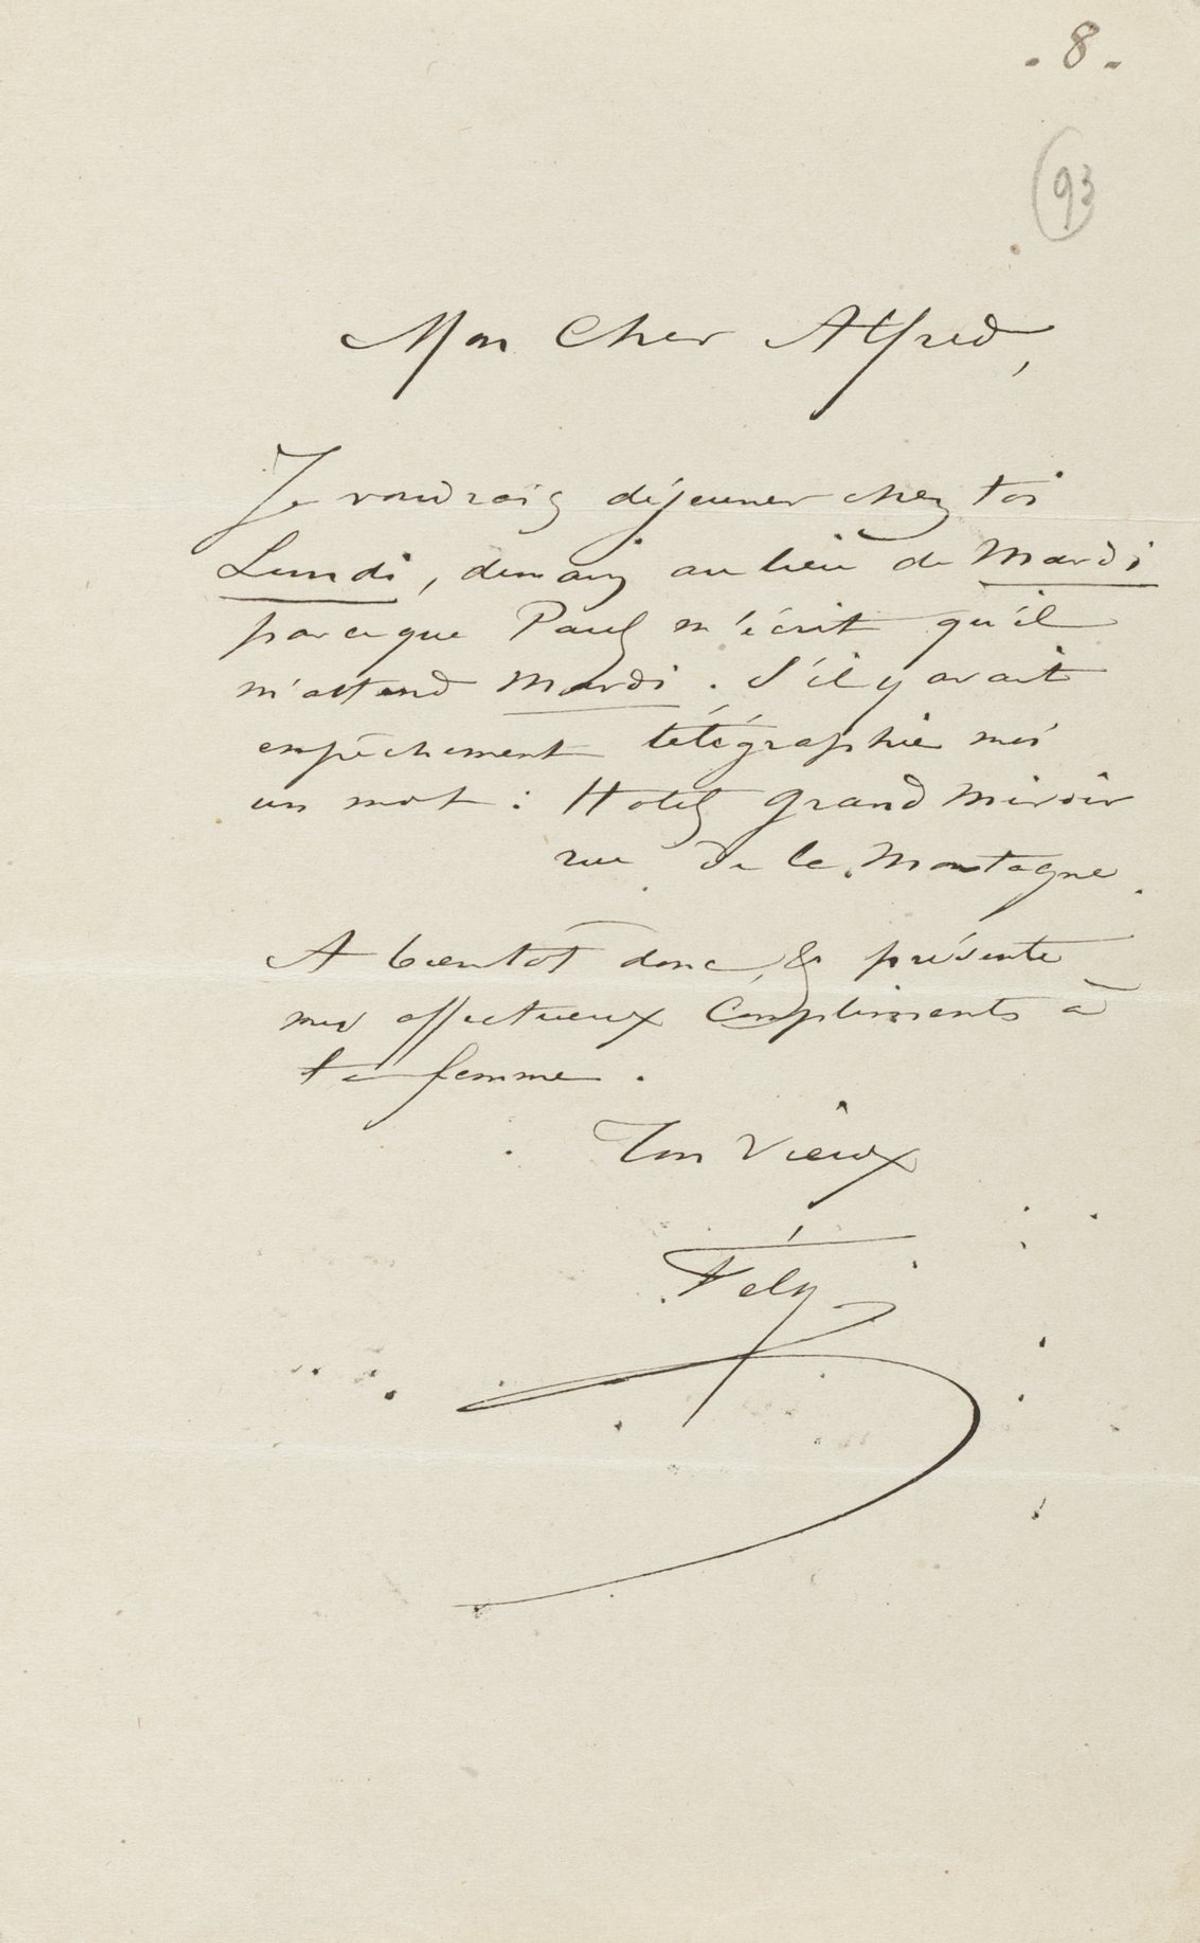 - 8 -
93
Mon Cher Alfred,
Je voudrais déjeuner chez toi
Lundi, demain au lieu de Mardi
parceque Paul m'écrit qu'il
m'attend Mardi. S'il y avait
empêchement télégraphie moi
un mot : Hotel Grand Miroir
rue de la Montagne.
A bientôt donc, & présente
mes affectueux Compliments à
ta femme.
Ton Vieux
Fély